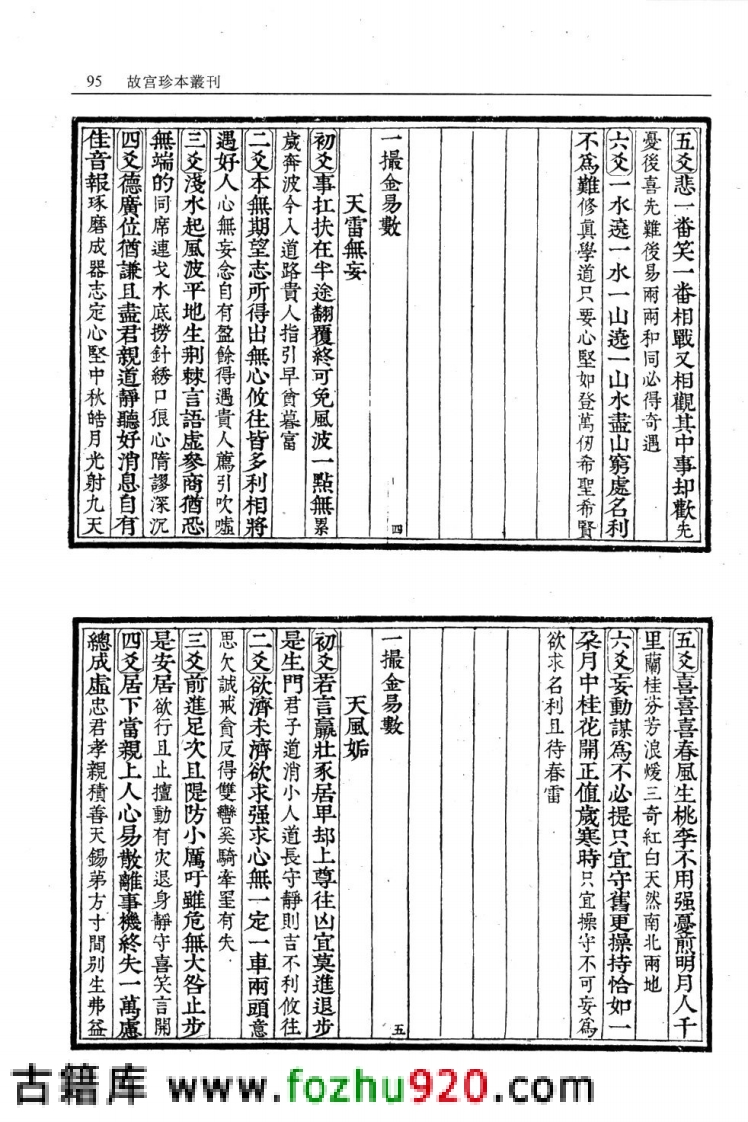 95 故宮珍本叢刊
五爻悲一番笑一番相戰又相觀其中事却歡先
憂後喜先難後易兩兩和同必得奇遇
六爻一水遶一水一山遶一山水盡山窮處名利
不爲難修眞學道只要心堅如登萬仞希聖希賢
一撮金易數
四
天雷無妄
初爻事扛扶在半途翻覆終可免風波一點無累
歲奔波今入道路貴人指引早曾暮富
二爻本無期望志所得出無心攸往皆多利相將
遇好人心無妄念自有盈餘得遇貴人薦引吹噓
三爻淺水起風波平地生荆棘言語虛參商猶恐
無端的同席連戈水底撈針綉口狠心隋謬深沉
四爻德廣位猶謙且盡君親道靜聽好消息自有
佳音報琢磨成器志定心堅中秋皓月光射九天
五爻喜喜喜春風生桃李不用强憂煎明月人千
里蘭桂芬芳浪煖三奇紅白天然南北兩地
六爻妄動謀爲不必提只宜守舊更操持恰如一
朶月中桂花開正值歲寒時只宜操守不可妄爲
欲求名利且待春雷
一撮金易數
五
天風姤
初爻若言羸壯豕居卑却上尊往凶宜莫進退步
是生門君子道消小人道長守靜則吉不利攸往
二爻欲濟未濟欲求强求心無一定一車兩頭意
思欠誠戒貪反得雙轡奚騎牽至有失
三爻前進足次且隄防小厲吁雖危無大咎止步
是安居欲行且止擅動有灾退身靜守喜笑言開
四爻居下當親上人心易散離事機終失一萬慮
總成虛忠君孝親積善天錫苐方寸間别生弗益
古籍库 www.fozhu920.com